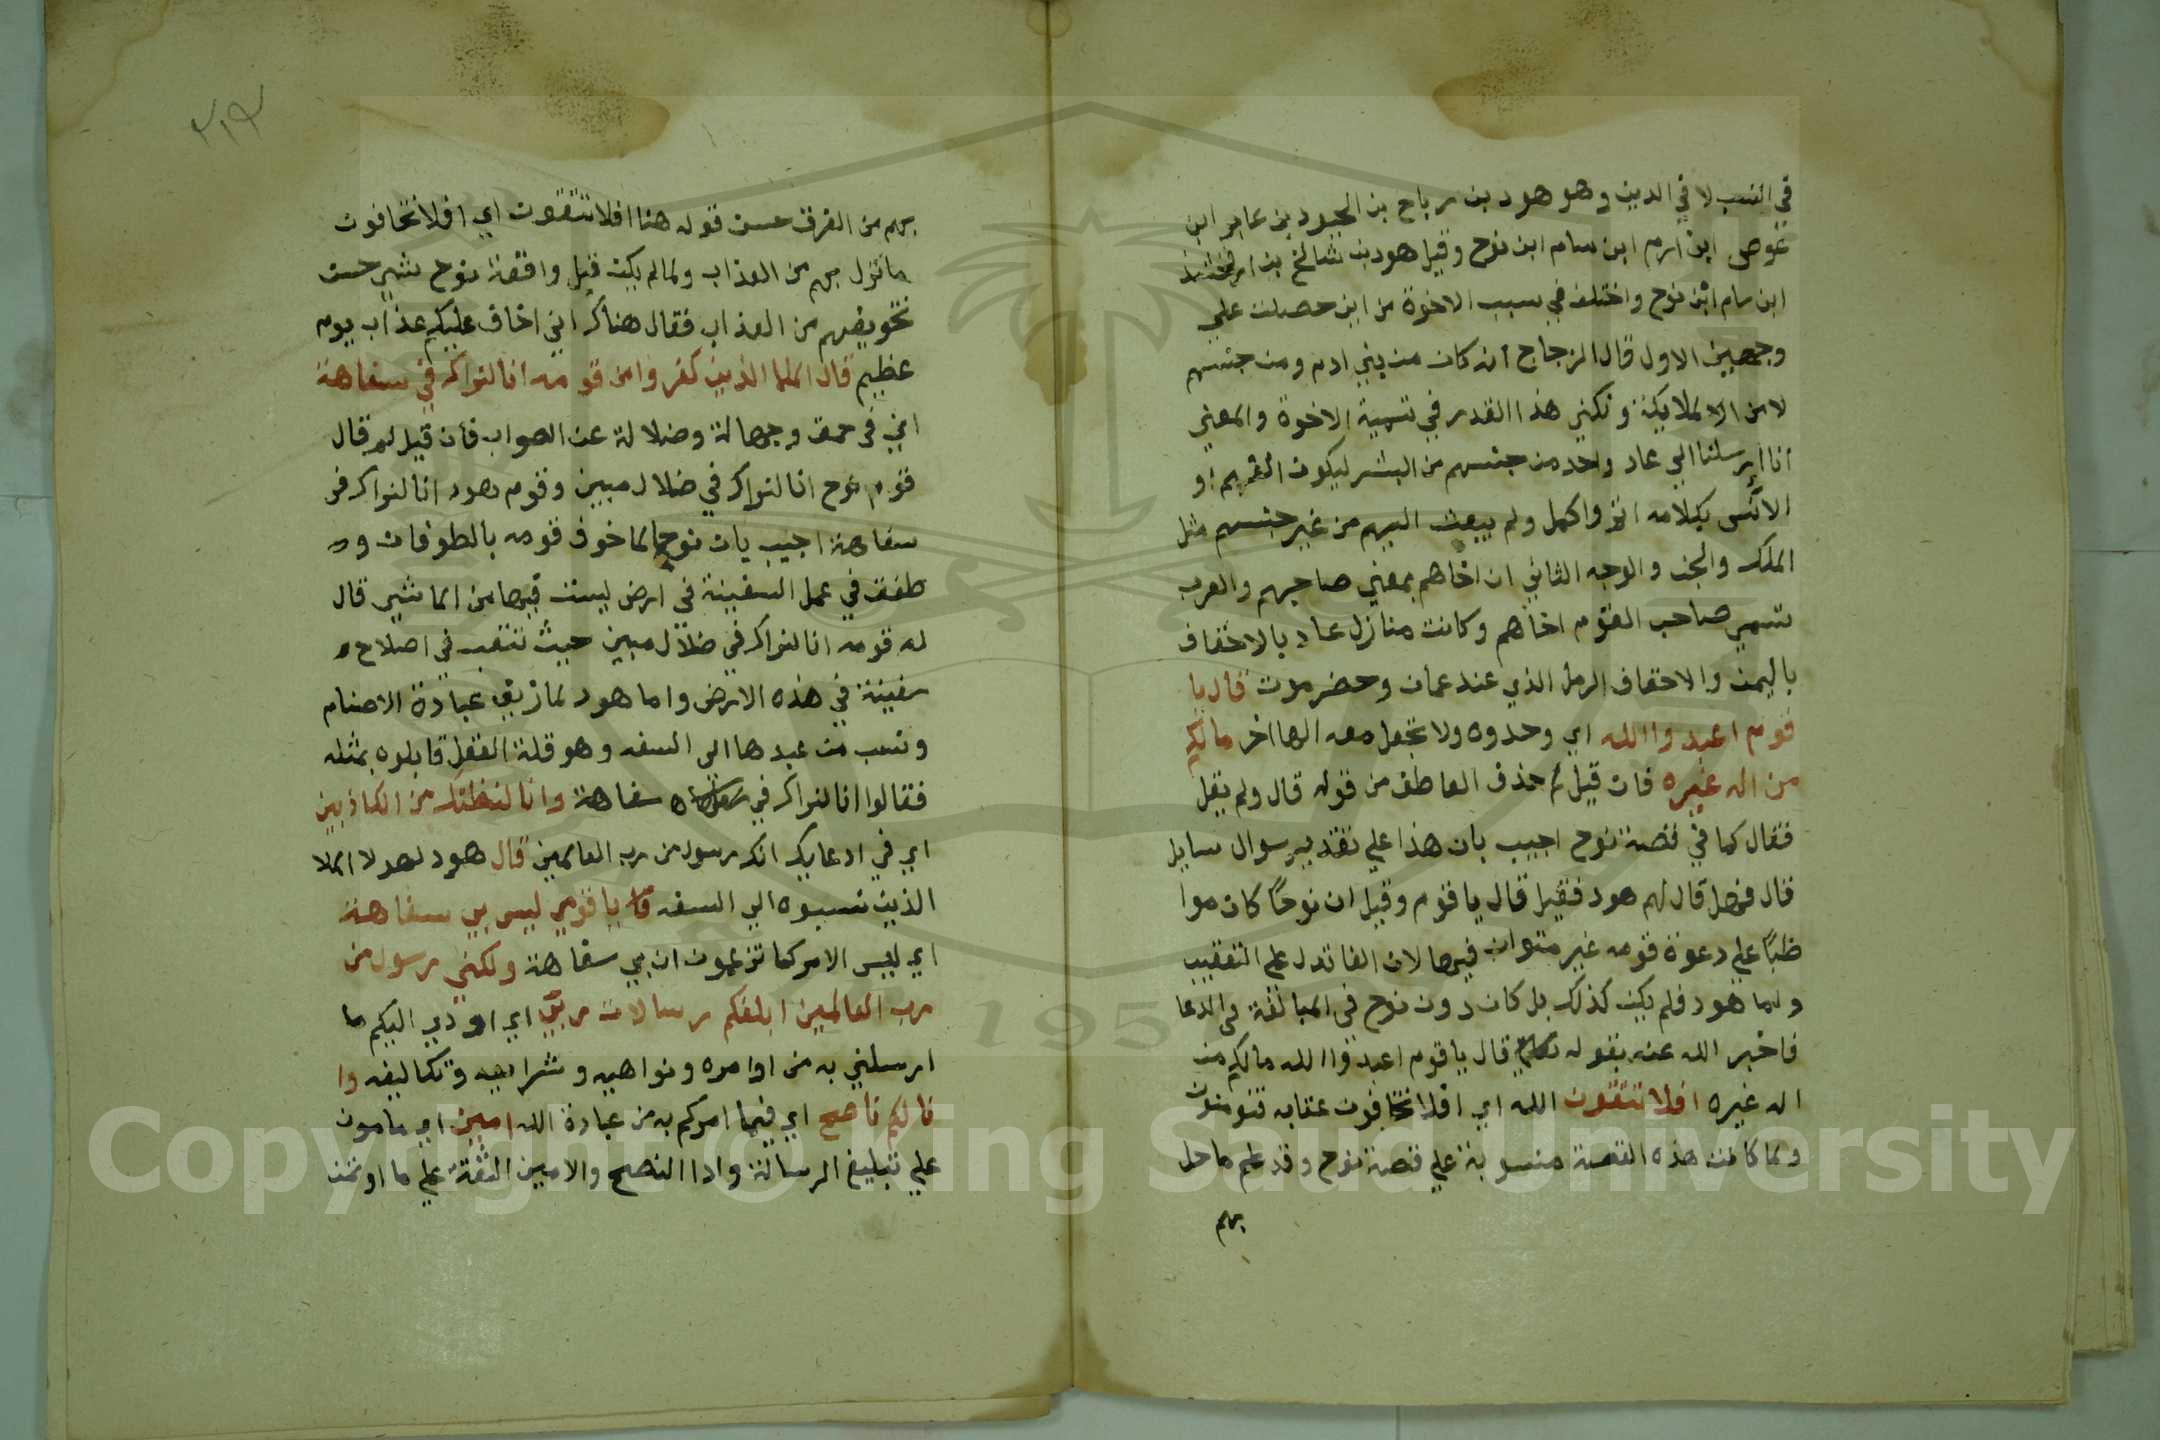 في النسب لا في الدين وهو هود بن رباح بن الجلود بن عامر ابن
عوص ابن ارم ابن سام ابن نوح وقيل هود بن شالخ بن ارفخشذ
ابن سام ابن نوح واختلف في سبب الاخوة من اين حصلت علي
وجهين الاول قال الزجاج انه كان من بني ادم ومن جنسهم
لا من الملايكة ونكني هذا القدر في تسمية الاخوة والمعني
انا ارسلنا الي عاد واحد من جنسهم من البشر ليكون الفهم او
الانس بكلامه اتم واكمل ولم يبعث اليهم من غير جنسهم مثل
الملك والجن والوجه الثاني ان اخاهم بمعني صاحبهم والعرب
تسمي صاحب القوم اخاهم وكانت منازل عاد بالاحقاف
باليمن والاحقاف الرمل الذي عند عمان وحضرموت قال يا
قوم اعبدوا الله اي وحدوه ولا تجعل معه الها اخر ما لكم
من اله غيره فان قيل لم حذف العاطف من قوله قال ولم يقل
فقال كما في قصة نوح اجيب بان هذا علي تقدير سوال سايل
قال فهل قال لهم هود فقيل قال يا قوم وقيل ان نوحًا كان موا
ظبًا علي دعوة قومه غير متوان فيها لان الفا تدل علي التعقيب
واما هود فلم يكن كذلك بل كان دون نوح في المبالغة في الدعا
فاخبر الله عنه بقوله قال يا قوم اعبدوا الله ما لكم من
اله غيره افلا تتقون الله اي افلا تخافون عقابه فتومنون
ولما كانت هذه القصة منسوبة علي قصة نوح وقد علم ما حل
بهم
٢١٩
بهم من الغرق حسن قوله هنا افلا تتقون اي افلا تخافون
ما نزل بهم من العذاب ولما لم يكن قبل واقعة نوح شي حسن
تخويفهم من العذاب فقال هناك اني اخاف عليكم عذاب يوم
عظيم قال الملا الذين كفروا من قومه انا لنراك في سفاهة
اي في حمق وجهالة وضلالة عن الصواب فان قيل لم قال
قوم نوح انا لنراك في ضلال مبين وقوم هود انا لنراك في
سفاهة اجيب بان نوحا لما خوف قومه بالطوفان و
طفق في عمل السفينة في ارض ليست فيها من الما شي قال
له قومه انا لنراك في ضلال مبين حيث تتعب في اصلاح
سفينة في هذه الارض واما هود لما زيف عبادة الاصنام
ونسب من عبدها الى السفه وهو قلة العقل قابلوه بمثله
فقالوا انا لنراك في سفاهة وانا لنظنك من الكاذبين
اي في ادعايك انك رسول من رب العالمين قال هود لهولا الملا
الذين نسبوه الي السفه يا قومي ليس بي سفاهة
اي ليس الامر كما تزعمون ان بي سفاهة ولكني رسول من
رب العالمين ابلغكم رسالات ربي اي اودي اليكم ما
ارسلني به من اوامره ونواهيه وشرايعه وتكاليفه وا
نا لكم ناصح اي فيما امركم به من عبادة الله امين اي مامون
علي تبليغ الرسالة وادا النصح والامين الثقة علي ما اوتمن
Copyright © King Saud University
195